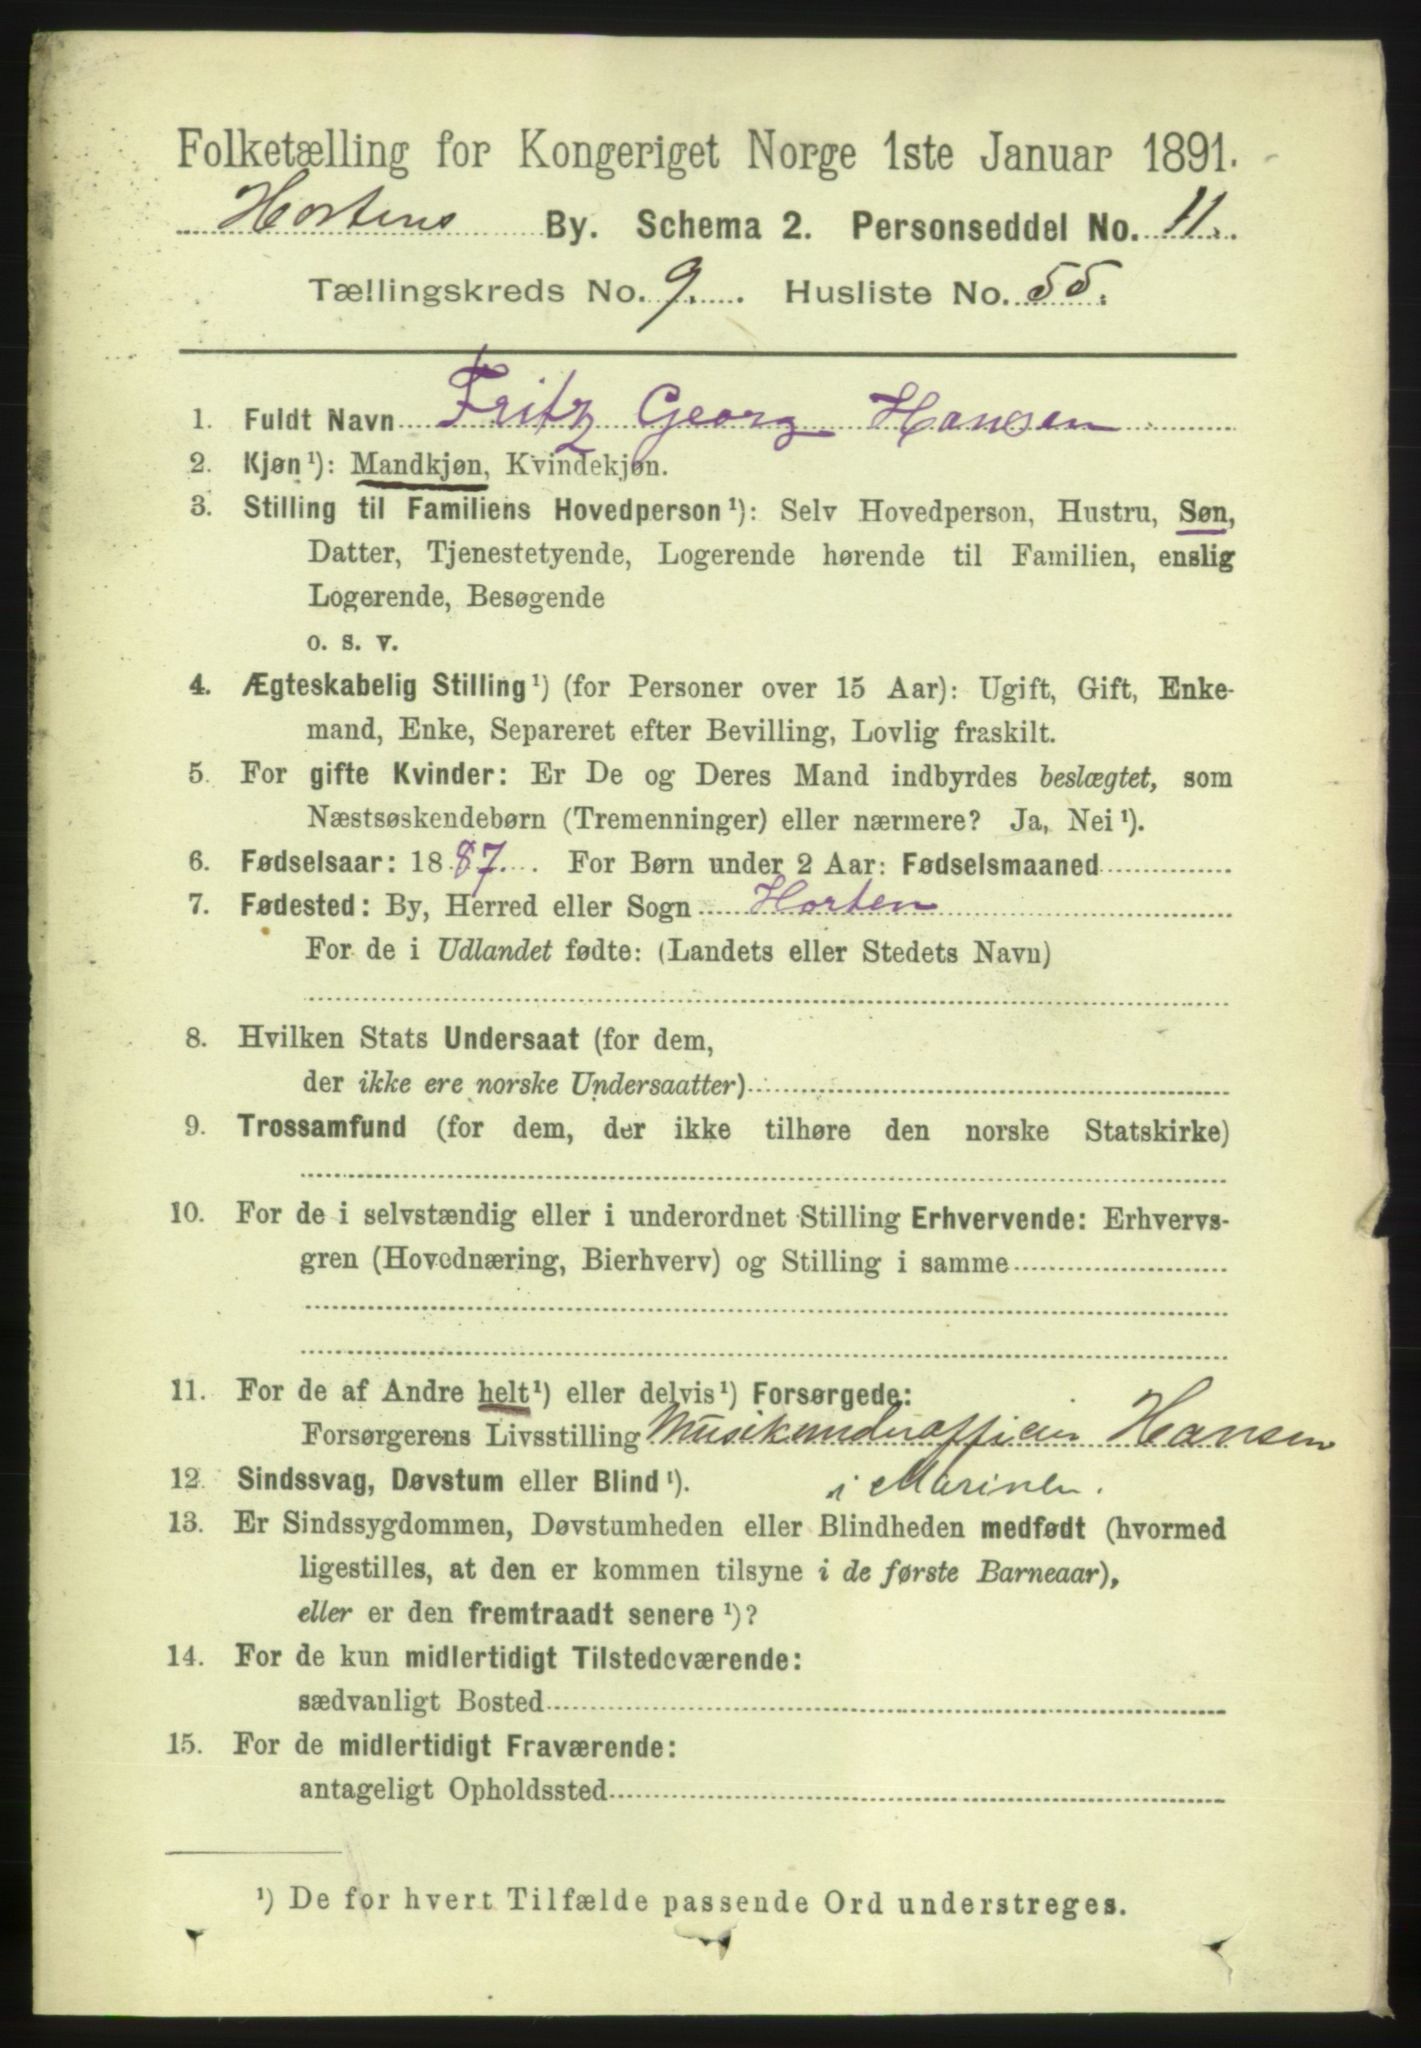 Folketælling for Kongeriget Norge 1ste Januar 1891.
Hortens By. Schema 2. Personseddel No. 11.
Tællingskreds No. 9. Husliste No. 55.
1. Fuldt Navn Fritz Georg Hansen
2. Kjøn¹): Mandkjøn, Kvindekjøn.
3. Stilling til Familiens Hovedperson¹): Selv Hovedperson, Hustru, Søn,
Datter, Tjenestetyende, Logerende hørende til Familien, enslig
Logerende, Besøgende
o. s. v.
4. Ægteskabelig Stilling¹) (for Personer over 15 Aar): Ugift, Gift, Enke-
mand, Enke, Separeret efter Bevilling, Lovlig fraskilt.
5. For gifte Kvinder: Er De og Deres Mand indbyrdes beslægtet, som
Næstsøskendebørn (Tremenninger) eller nærmere? Ja, Nei¹).
6. Fødselsaar: 1887. For Børn under 2 Aar: Fødselsmaaned
7. Fødested: By, Herred eller Sogn Horten
For de i Udlandet fødte: (Landets eller Stedets Navn)
8. Hvilken Stats Undersaat (for dem,
der ikke ere norske Undersaatter)
9. Trossamfund (for dem, der ikke tilhøre den norske Statskirke)
10. For de i selvstændig eller i underordnet Stilling Erhvervende: Erhvervs-
gren (Hovednæring, Bierhverv) og Stilling i samme
11. For de af Andre helt¹) eller delvis¹) Forsørgede:
Forsørgerens Livsstilling Musikunderofficier Hansen
12. Sindssvag, Døvstum eller Blind¹). i Marinen.
13. Er Sindssygdommen, Døvstumheden eller Blindheden medfødt (hvormed
ligestilles, at den er kommen tilsyne i de første Barneaar),
eller er den fremtraadt senere¹)?
14. For de kun midlertidigt Tilstedeværende:
sædvanligt Bosted
15. For de midlertidigt Fraværende:
antageligt Opholdssted
¹) De for hvert Tilfælde passende Ord understreges.